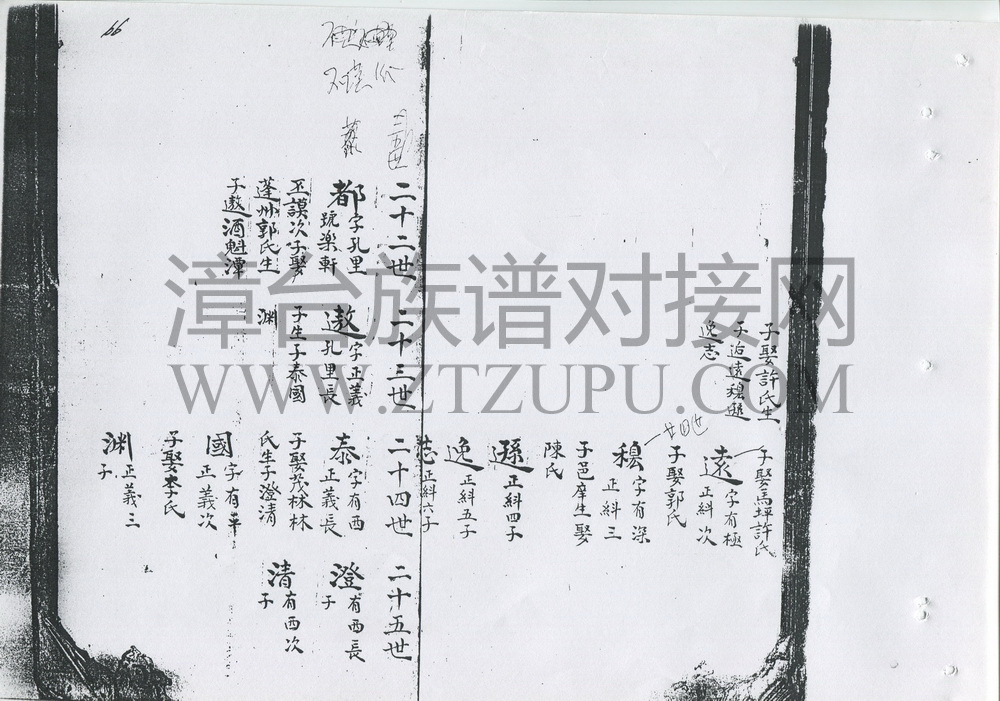 子娶許氏生
子追遠穆遜
逸志
子娶馬坪許氏
遠字有極
正紏次
子娶郭氏
廿四世
穆字有深
正紏三
子邑庠生娶
陳氏
遜正紏四子
逸正紏五子
志正紏六子
三五世
二十二世
都字孔里
號樂軒
丕謨次子娶
蓬州郭氏生
子遨酒魁潭
二十三世
遨字正義
孔里長
子生子泰國
淵
二十四世
泰字有西
正義長
子娶茂林林
氏生子澄清
國字有華
正義次
子娶李氏
淵正義三
子
二十五世
澄有西長
子
清有西次
子
66
漳台族谱对接网
WWW.ZTZUPU.COM